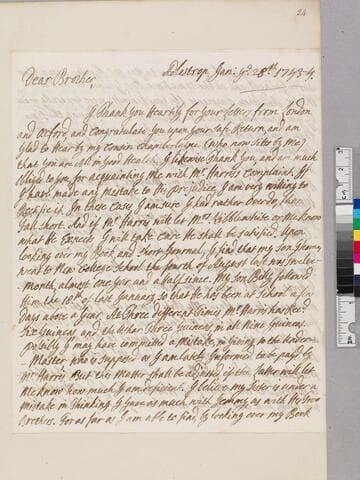 24
Adlestrop Jan: ye 28th 1743-4.
Dear Brother,
I Thank You Heartily for your Letter from London
and Oxford, and Congratulate You upon Your Safe Return, and am
Glad to Hear by my Cousin Chamberlayne (who now sitts by Me)
that You are all in good Health. I likewise Thank You, and am much
obliged to you for acquainting Me with Mr Harris's Complaint. If
I have made any Mistake to His prejudice, I am very willing to
Rectifie it. In these Cases I am sure I had rather Over do, than
Fall short. And if Mr Harris will let Mrs or Me know
what He Expects I will take care He shall be satisfied. Upon
looking over my Book, and short Journal, I find that my Son Jemmy
went to New College School the fourth of August last was Twelve-
month, almost one year and a half since. My Son Billy followed
Him the 18th of last January, so that He has been at School a few
Days above a Year. At Three different Times Mr Harris has Rec:d
Six Guineas, and the Usher Three Guineas, in all Nine Guineas.
Possibly I may have committed a Mistake in giving to the Under
Master, who is supposed as I am lately Informed to be paid by
Mr Harris. But this Matter shall be adjusted if the latter will let
Me know how much I am deficient. I believe my Sister is under a
mistake in Thinking I gave as much with Jemmy, as with His Two
Brothers. For as far as I am able to find by looking over my Book